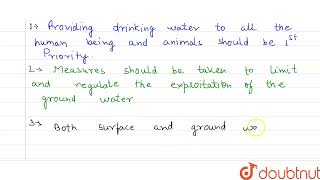 1:- Providing drinking water to all the
human being and animals should be 1st
Priority.
2:- Measures should be taken to limit
and regulate the exploitation of the
ground water
3:- Both surface and ground wa
doubtnut